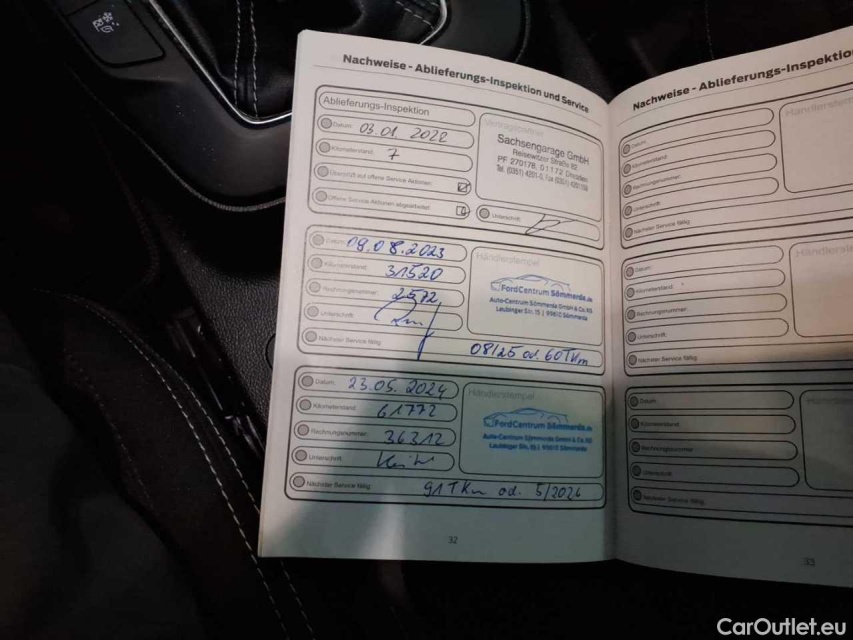 Nachweise - Ablieferungs-Inspektion und Service
Ablieferungs-Inspektion
Datum: 03.01 2022
Kilometerstand: 7
Überprüft auf offene Service Aktionen:
Offene Service Aktionen abgearbeitet:
Sachsengarage GmbH
Reisewitzer Straße 82
PF 270178, 01172 Dresden
Unterschrift:
Datum: 09.08.2023
Kilometerstand: 31520
Rechnungsnummer: 2572
Unterschrift:
Nächster Service fällig: 08/25 od. 60TKm
Händlerstempel
FordCentrum Sömmerda.de
Auto-Centrum Sömmerda GmbH & Co. KG
Leubinger Str. 15 | 99610 Sömmerda
Datum: 23.05.2024
Kilometerstand: 61772
Rechnungsnummer: 36312
Unterschrift:
Nächster Service fällig: 91TKm od. 5/2026
Händlerstempel
FordCentrum Sömmerda.de
Auto-Centrum Sömmerda GmbH & Co. KG
Leubinger Str. 15 | 99610 Sömmerda
32
Nachweise - Ablieferungs-Inspektio
Datum:
Kilometerstand:
Rechnungsnummer:
Unterschrift:
Nächster Service fällig:
Händlerstem
Datum:
Kilometerstand:
Rechnungsnummer:
Unterschrift:
Nächster Service fällig:
Händlerste
Datum:
Kilometerstand:
Rechnungsnummer:
Unterschrift:
Nächster Service fällig:
33
CarOutlet.eu